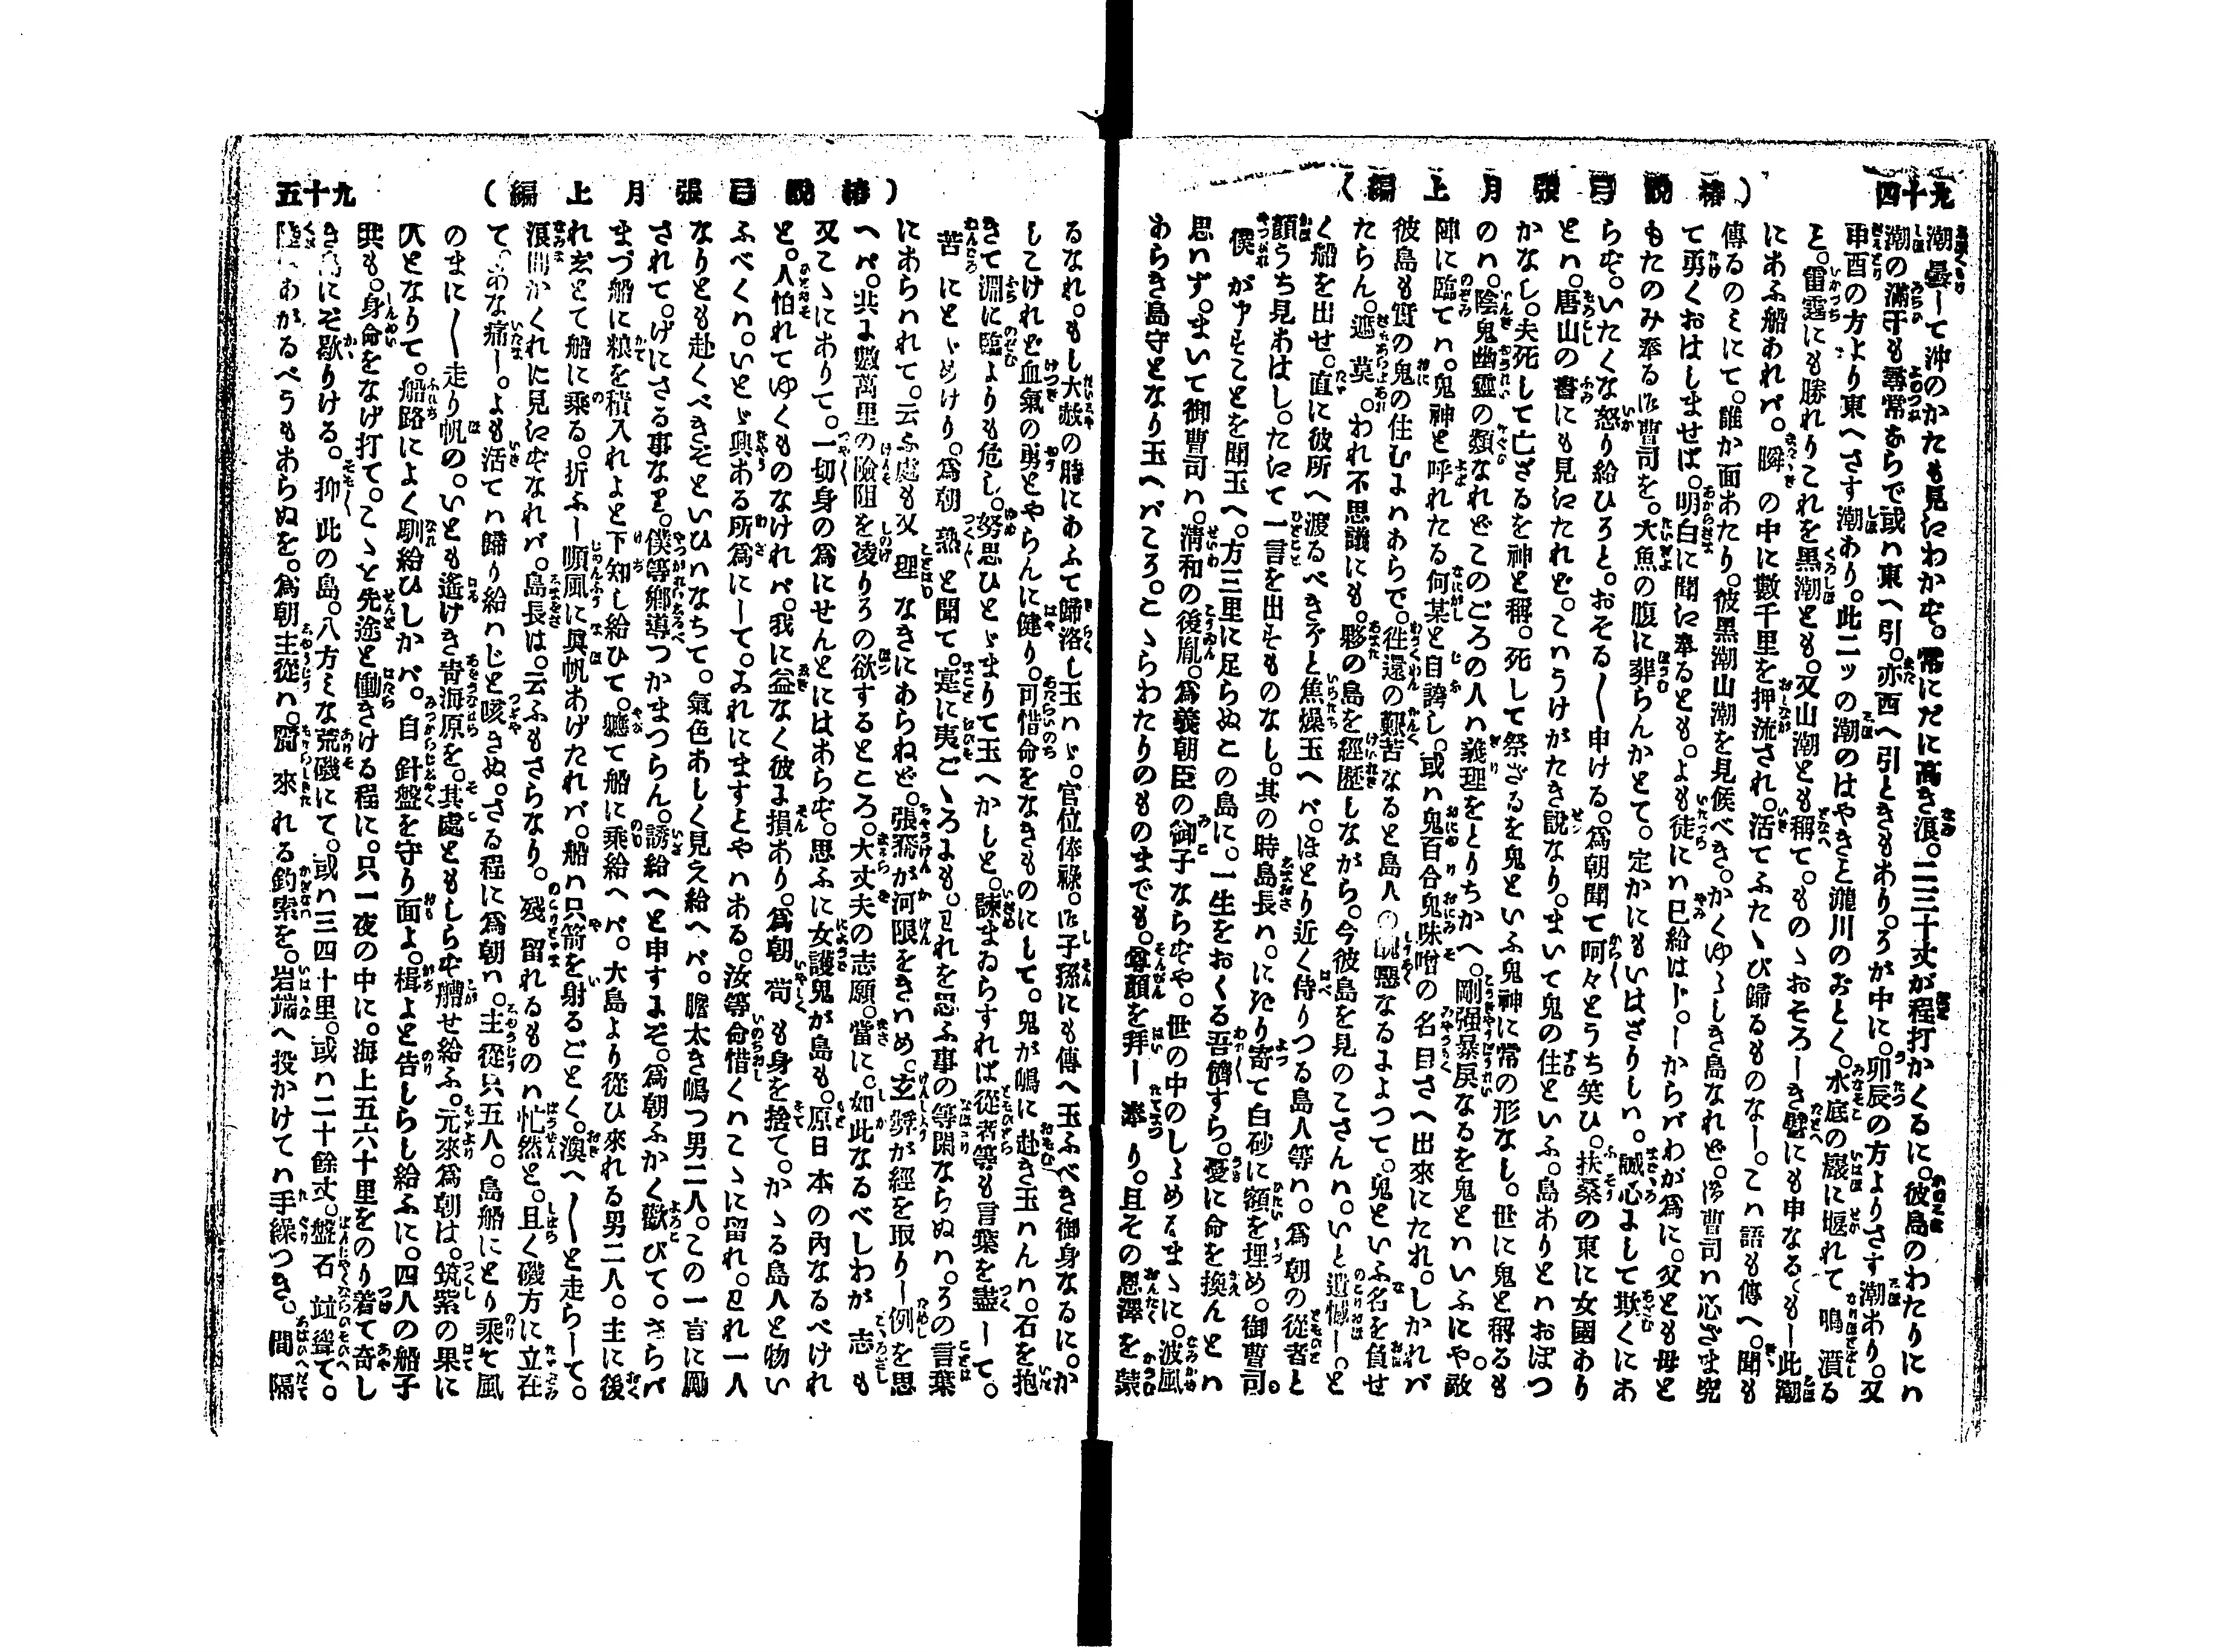 九十四
（椿説弓張月上編）
潮曇して沖のかたも見にわかず。常にだに高き浪。二三十丈が程打かくるに。彼島のわたりにハ
潮の滿干も尋常ならで或ハ東へ引。亦西へ引ときもあり。ろが中に。卯辰の方よりさす潮あり。又
申酉の方より東へさす潮あり。此二ッの潮のはやきと瀧川のおとく。水底の巖に堰れて鳴瀆る
と。雷霆にも勝れりこれを黒潮とも。又山潮とも稱て。ものゝおそろしき譬にも申なるくもし此潮
にあふ船あれバ。瞬の中に數千里を押流され。活てふたゝび歸るものなし。こハ語も傳へ。聞も
傳るのミにて。誰か面あたり。彼黒潮山潮を見候べき。かくゆゝしき島なれど。御曹司ハ心ざま究
て勇くおはしませば。明白に聞に奉るとも。よも徒にハ已給はじ。しからバわが爲に。父とも母と
もたのみ奉る御曹司を。大魚の腹に葬らんかとて。定かにもいはざりしハ。誠心よして欺くにあ
らず。いたくな怒り給ひろと。おそる〱申ける。爲朝聞て呵々とうち笑ひ。扶桑の東に女國あり
とハ。唐山の書にも見にたれど。こハうけがたき説なり。まいて鬼の住といふ。島ありとハおぼつ
かなし。夫死して亡ざるを神と稱。死して祭ざるを鬼といふ鬼神に常の形なし。世に鬼と稱るも
のハ。陰鬼幽靈の類なれどこのごろの人ハ義理をとりちかへ。剛強暴戻なるを鬼とハいふにや敵
陣に臨てハ。鬼神と呼れたる何某と自誇し。或ハ鬼百合鬼味噌の名目さへ出來にたれ。しかれバ
彼島も實の鬼の住むよハあらで。徃還の艱苦なると島人の醜惡なるよよつて。鬼といふ名を負せ
たらん。遮莫。われ不思議にも。夥の島を經歴しながら。今彼島を見のこさんハ。いと遺憾し。と
く船を出せ。直に彼所へ渡るべきぞと焦燥玉へバ。ほとり近く侍りつる島人等ハ。爲朝の從者と
顔うち見あはし。たにて一言を出すものなし。其の時島長ハ。にたり寄て白砂に額を埋め。御曹司。
僕がやすことを聞玉へ。方三里に足らぬこの島に。一生をおくる吾儕すら。憂に命を換んとハ
思ハず。まいて御曹司ハ。清和の後胤。爲義朝臣の御子ならずや。世の中のしゝめるまゝに。波風
あらき島守となり玉へバころ。こゝらわたりのものまでも。尊顔を拜し奉り。且その恩澤を禁
九十五
（椿説弓張月上編）
るなれ。もし大赦の時にあふて歸洛し玉ハゞ。官位俸祿。御子孫にも傳へ玉ふべき御身なるに。か
しこけれど血氣の勇とやらんに健り。可惜命をなきものにして。鬼が嶋に赴き玉ハんハ。石を抱
きて淵に臨よりも危し。努思ひとゞまりて玉へかしと。諫まゐらすれば從者等も言葉を盡して。
苦にとゞめけり。爲朝熟と聞て。寔に夷ごゝろよも。われを思ふ事の等閑ならぬハ。ろの言葉
にあらハれて。云ふ處も又理なきにあらねど。張騫が河限をきハめ。玄弉が經を取りし例を思
へバ。共よ數萬里の險阻を凌りろの欲するところ。大丈夫の志願。當に。如此なるべしわが志も
又こゝにありて。一切身の爲にせんとにはあらず。思ふに女護鬼が島も。原日本の内なるべけれ
と。人怕れてゆくものなけれバ。我に益なく彼よ損あり。爲朝苟も身を捨て。かゝる島人と物い
ふべくハ。いとゞ興ある所爲にして。よれにますとやハある。汝等命惜くハこゝに留れ。われ一人
なりとも赴くべきぞといひハなちて。氣色あしく見え給へバ。膽太き嶋つ男二人。この一言に勵
されて。げにさる事なり。僕等郷導つかまつらん。誘給へと申すよぞ。爲朝ふかく歡びて。さらバ
まづ船に粮を積入れよと下知し給ひて。軈て船に乗給へバ。大島より從ひ來れる男二人。主に後
れ志とて船に乘る。折ふし順風に眞帆あげたれバ。船ハ只箭を射るごとく。澳へ〱と走らして。
浪間かくれに見にずなれバ。島長は。云ふもさらなり。殘留れるものハ忙然と。且く磯方に立在
て。あな痛し。よも活てハ歸り給ハじと咳きぬ。さる程に爲朝ハ。主從只五人。島船にとり乘て風
のまに〱走り帆の。いとも遙けき青海原を。其處ともしらず艚せ給ふ。元來爲朝は。筑紫の果に
人となりて。船路によく馴給ひしかバ。自針盤を守り面よ。楫よと告しらし給ふに。四人の船子
共も。身命をなげ打て。こゝと先途と働きける程に。只一夜の中に。海上五六十里をのり着て奇し
き島にぞ歇りける。抑此の島。八方ミな荒磯にて。或ハ三四十里。或ハ二十餘丈。盤石竝聳て。
陸にあがるべうもあらぬを。爲朝主從ハ。齎來れる釣索を。岩端へ投かけてハ手繰つき。間隔